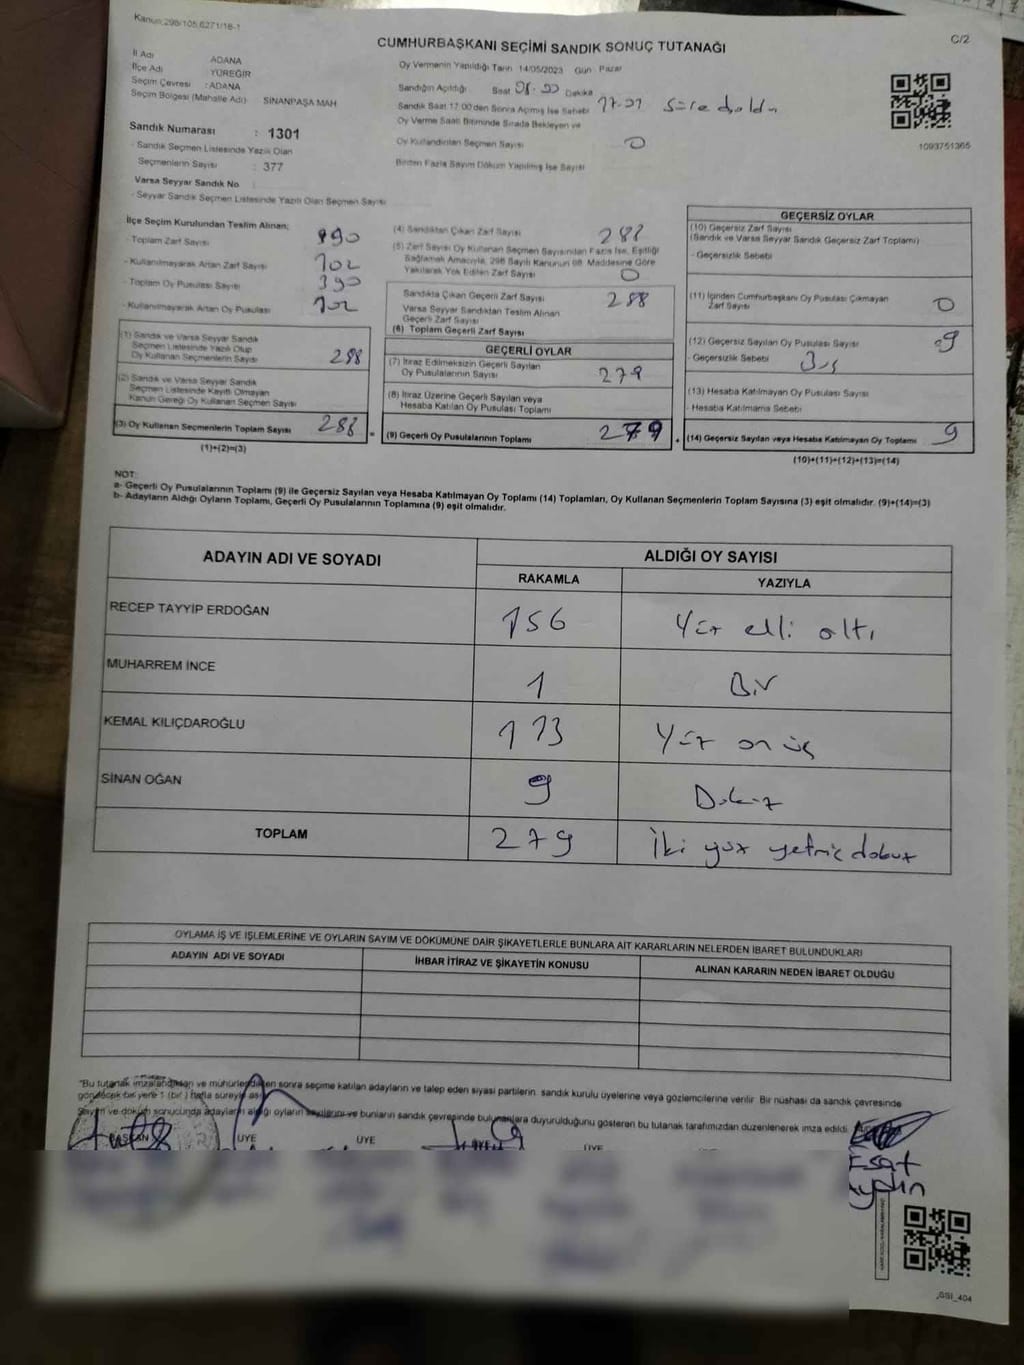 Kanun:298/105,6271/18-1
C/2
CUMHURBAŞKANI SEÇİMİ SANDIK SONUÇ TUTANAĞI
İl Adı ADANA
İlçe Adı YÜREĞİR
Seçim Çevresi : ADANA
Seçim Bölgesi (Mahalle Adı) SİNANPAŞA MAH
Oy Vermenin Yapıldığı Tarih 14/05/2023 Gün Pazar
Sandığın Açıldığı Saat Dakika
Sandık Saat 17:00'den Sonra Açılmış İse Sebebi 17.01 Süre doldu
Oy Verme Saati Bitiminde Sırada Bekleyen ve
Oy Kullandırılan Seçmen Sayısı 0
Birden Fazla Sayım Döküm Yapılmış İse Sayısı
1093751365
Sandık Numarası : 1301
- Sandık Seçmen Listesinde Yazılı Olan
Seçmenlerin Sayısı : 377
Varsa Seyyar Sandık No
- Seyyar Sandık Seçmen Listesinde Yazılı Olan Seçmen Sayısı
İlçe Seçim Kurulundan Teslim Alınan;
- Toplam Zarf Sayısı 390
- Kullanılmayarak Artan Zarf Sayısı 102
- Toplam Oy Pusulası Sayısı 390
- Kullanılmayarak Artan Oy Pusulası 102
(1) Sandık ve Varsa Seyyar Sandık
Seçmen Listesinde Yazılı Olup
Oy Kullanan Seçmenlerin Sayısı 288
(2) Sandık ve Varsa Seyyar Sandık
Seçmen Listesinde Kayıtlı Olmayan
Kanun Gereği Oy Kullanan Seçmen Sayısı
(3) Oy Kullanan Seçmenlerin Toplam Sayısı 288
(1)+(2)=(3)
(4) Sandıktan Çıkan Zarf Sayısı 288
(5) Zarf Sayısı Oy Kullanan Seçmen Sayısından Fazla İse, Eşitliği
Sağlamak Amacıyla, 298 Sayılı Kanunun 98. Maddesine Göre
Yakılarak Yok Edilen Zarf Sayısı 0
Sandıkta Çıkan Geçerli Zarf Sayısı 288
Varsa Seyyar Sandıktan Teslim Alınan
Geçerli Zarf Sayısı
(6) Toplam Geçerli Zarf Sayısı
GEÇERLİ OYLAR
(7) İtiraz Edilmeksizin Geçerli Sayılan
Oy Pusulalarının Sayısı 279
(8) İtiraz Üzerine Geçerli Sayılan veya
Hesaba Katılan Oy Pusulası Toplamı
(9) Geçerli Oy Pusulalarının Toplamı 279
GEÇERSİZ OYLAR
(10) Geçersiz Zarf Sayısı
(Sandık ve Varsa Seyyar Sandık Geçersiz Zarf Toplamı)
- Geçersizlik Sebebi
(11) İçinden Cumhurbaşkanı Oy Pusulası Çıkmayan
Zarf Sayısı 0
(12) Geçersiz Sayılan Oy Pusulası Sayısı 9
- Geçersizlik Sebebi
(13) Hesaba Katılmayan Oy Pusulası Sayısı
- Hesaba Katılmama Sebebi
(14) Geçersiz Sayılan veya Hesaba Katılmayan Oy Toplamı 9
(10)+(11)+(12)+(13)=(14)
NOT:
a- Geçerli Oy Pusulalarının Toplamı (9) ile Geçersiz Sayılan veya Hesaba Katılmayan Oy Toplamı (14) Toplamları, Oy Kullanan Seçmenlerin Toplam Sayısına (3) eşit olmalıdır. (9)+(14)=(3)
b- Adayların Aldığı Oyların Toplamı, Geçerli Oy Pusulalarının Toplamına (9) eşit olmalıdır.
ADAYIN ADI VE SOYADI ALDIĞI OY SAYISI
RAKAMLA YAZIYLA
RECEP TAYYİP ERDOĞAN 156 Yüz elli altı
MUHARREM İNCE 1 Bir
KEMAL KILIÇDAROĞLU 113 Yüz on üç
SİNAN OĞAN 9 Dokuz
TOPLAM 279 İki yüz yetmiş dokuz
OYLAMA İŞ VE İŞLEMLERİNE VE OYLARIN SAYIM VE DÖKÜMÜNE DAİR ŞİKAYETLERLE BUNLARA AİT KARARLARIN NELERDEN İBARET BULUNDUKLARI
ADAYIN ADI VE SOYADI İHBAR İTİRAZ VE ŞİKAYETİN KONUSU ALINAN KARARIN NEDEN İBARET OLDUĞU
"Bu tutanak imzalandıktan ve mühürlendikten sonra seçime katılan adayların ve talep eden siyasi partilerin, sandık kurulu üyelerine veya gözlemcilerine verilir. Bir nüshası da sandık çevresinde
görülecek bir yere 1 (bir) hafta süreyle asılır
Sayım ve döküm sonucunda adayların aldığı oyların sayılarını ve bunların sandık çevresinde bulunanlara duyurulduğunu gösteren bu tutanak tarafımızdan düzenlenerek imza edildi.
BAŞKAN ÜYE ÜYE ÜYE ÜYE
Esat
Aydın
_GSI_404